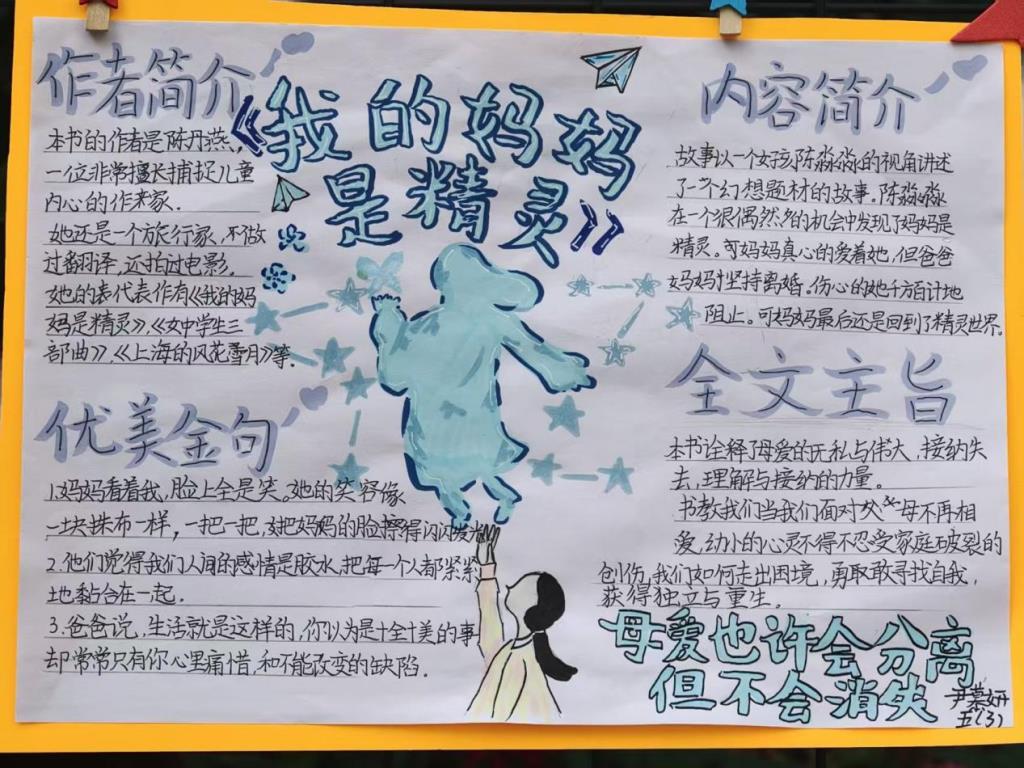 作者简介
本书的作者是陈丹燕,
一位非常擅长捕捉儿童
内心的作家.
她还是一个旅行家,不仅做
过翻译,还拍过电影.
她的表代表作有《我的妈
妈是精灵》、《女中学生三
部曲》、《上海的风花雪月》等.
《我的妈妈
是精灵》
内容简介
故事以一个女孩陈淼淼的视角讲述
了一个幻想题材的故事.陈淼淼
在一个很偶然的机会中发现了妈妈是
精灵。可妈妈真心的爱着她,但爸爸
妈妈却坚持离婚.伤心的她千方百计地
阻止。可妈妈最后还是回到了精灵世界.
优美金句
1.妈妈看着我,脸上全是笑.她的笑容像
一块抹布一样,一把一把,把妈妈的脸擦得闪闪发光
2.他们觉得我们人间的感情是胶水,把每一个人都紧紧
地黏合在一起.
3.爸爸说,生活就是这样的,你以为是十全十美的事
却常常只有你心里痛惜,和不能改变的缺陷.
全文主旨
本书诠释了母爱的无私与伟大,接纳失
去,理解与接纳的力量。
书教我们当我们面对父母不再相
爱,幼小的心灵不得不忍受家庭破裂的
创伤,我们如何走出困境,勇敢寻找自我,
获得独立与重生.
母爱也许会分离
但不会消失
尹慕妍
五(3)